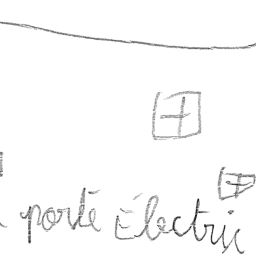 porté Électric